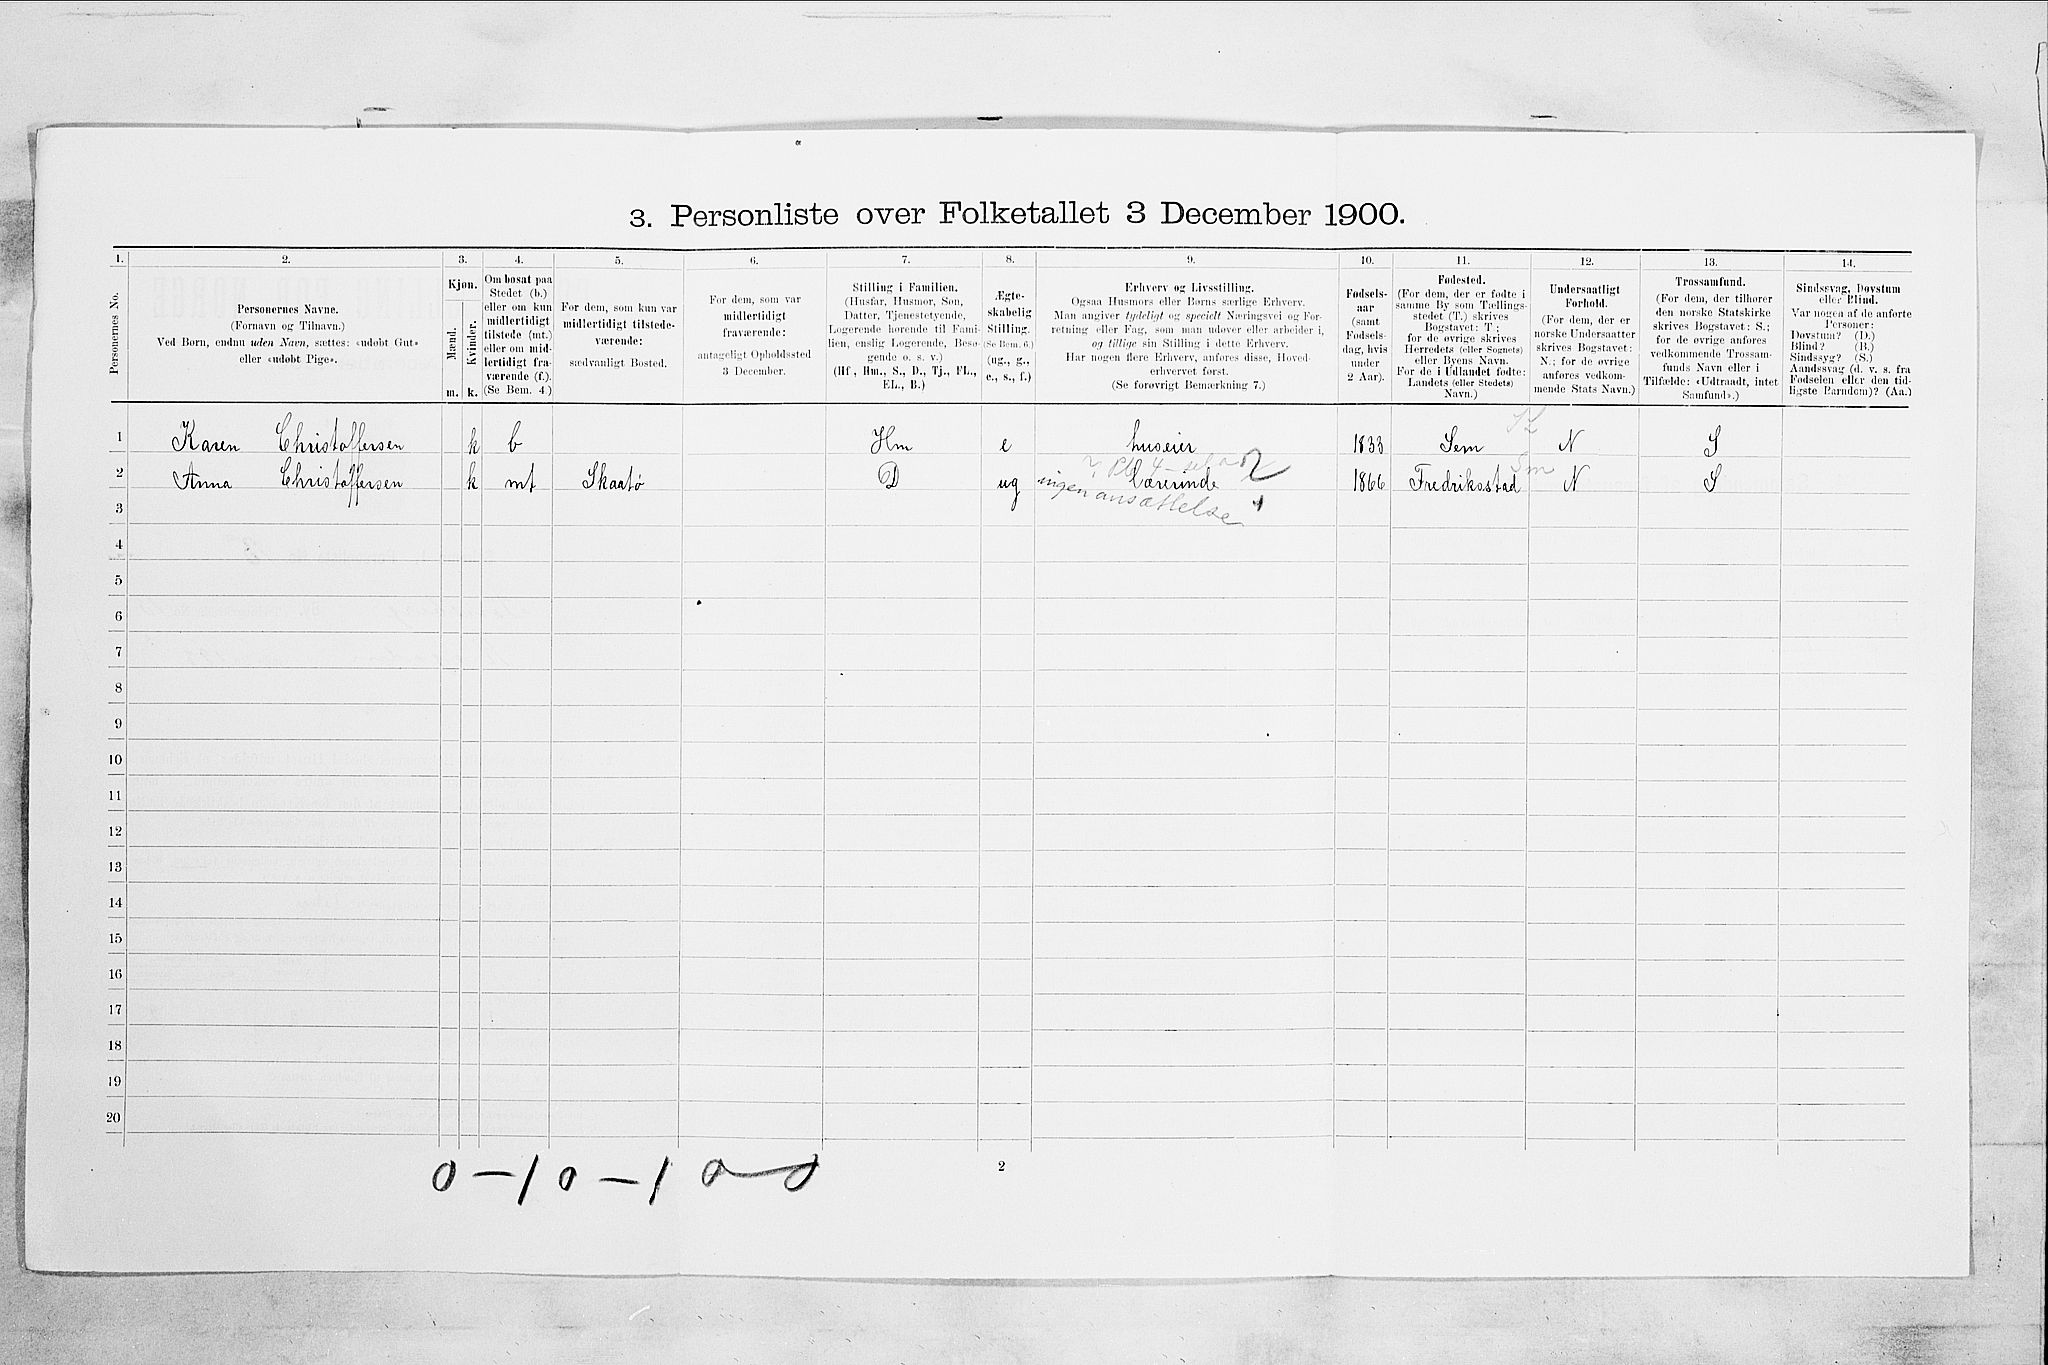 3. Personliste over Folketallet 3 December 1900.
1. 2. 3. 4. 5. 6. 7. 8. 9. 10. 11. 12. 13. 14.
Personernes No.
Personernes Navne.
(Fornavn og Tilnavn.)
Ved Børn, endnu uden Navn, sættes: «udøbt Gut»
eller «udøbt Pige».
Kjøn.
Mænd.
Kvinder.
m. k.
Om bosat paa
Stedet (b.)
eller om kun
midlertidigt
tilstede (mt.)
eller om mid-
lertidigt fra-
værende (f.).
(Se Bem. 4.)
For dem, som kun var
midlertidigt tilstede-
værende:
sædvanligt Bosted.
For dem, som var
midlertidigt
fraværende:
antageligt Opholdssted
3 December.
Stilling i Familien.
(Husfar, Husmor, Søn,
Datter, Tjenestetyende,
Logerende hørende til Fami-
lien, enslig Logerende, Besø-
gende o. s. v.)
(Hf, Hm., S., D., Tj., FL.,
EL., B.)
Ægte-
skabelig
Stilling.
(Se Bem. 6.)
(ug., g.,
e., s., f.)
Erhverv og Livsstilling.
Ogsaa Husmors eller Børns særlige Erhverv.
Man angiver tydeligt og specielt Næringsvei og For-
retning eller Fag, som man udøver eller arbeider i,
og tillige sin Stilling i dette Erhverv.
Har nogen flere Erhverv, anføres disse, Hoved-
erhvervet først.
(Se forøvrigt Bemærkning 7.)
Fødsels-
aar
(samt
Fødsels-
dag, hvis
under
2 Aar).
Fødested.
(For dem, der er fødte i
samme By som Tællings-
stedet (T.) skrives
Bogstavet: T;
for de øvrige skrives
Herredets (eller Sognets)
eller Byens Navn.
For de i Udlandet fødte:
Landets (eller Stedets)
Navn.)
Undersaatligt
Forhold.
(For dem, der er
norske Undersaatter
skrives Bogstavet:
N.; for de øvrige
anføres vedkom-
mende Stats Navn.)
Trossamfund.
(For dem, der tilhører
den norske Statskirke
skrives Bogstavet: S.;
for de øvrige anføres
vedkommende Trossam-
funds Navn eller i
Tilfælde: «Udtraadt, intet
Samfund».)
Sindssvag, Døvstum
eller Blind.
Var nogen af de anførte
Personer:
Døvstum? (D.)
Blind? (B.)
Sindssyg? (S.)
Aandssvag (d. v. s. fra
Fødselen eller den tid-
ligste Barndom)? (Aa.)
1 Karen Christoffersen k b Hm e huseier 1833 Sem N S
2 Anna Christoffersen k mt Skaatø D ug Lærerinde 1866 Fredriksstad N S
ingen ansættelse
3
4
5
6
7
8
9
10
11
12
13
14
15
16
17
18
19
20
0 — 1 0 — 1 0 — 0
2